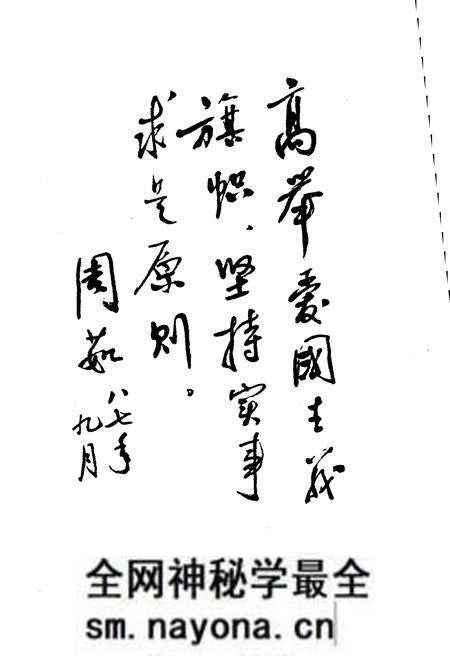 高举爱國主義
旗帜、坚持实事
求是原则。
周茹
八七年
九月
全网神秘学最全
sm.nayona.cn